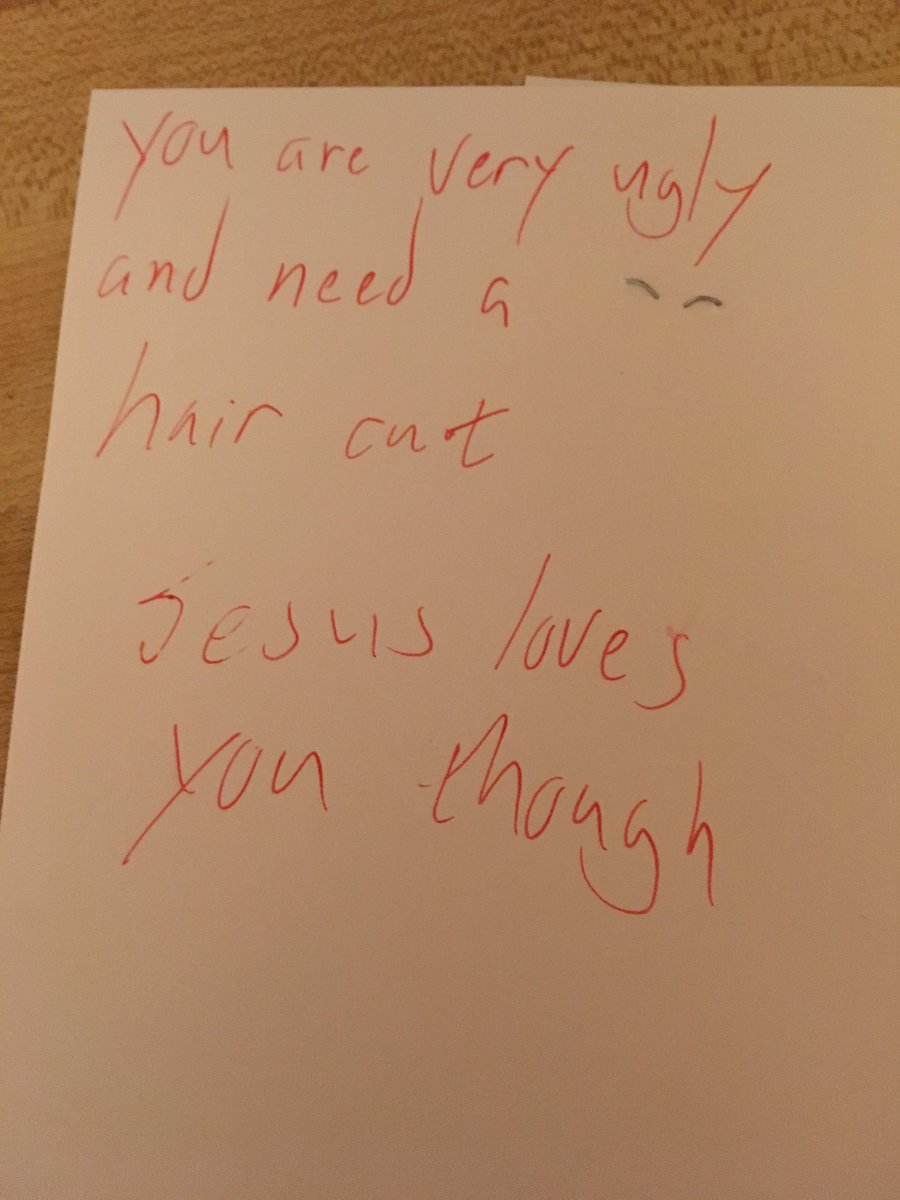 you are very ugly
and need a
hair cut
Jesus loves
you though